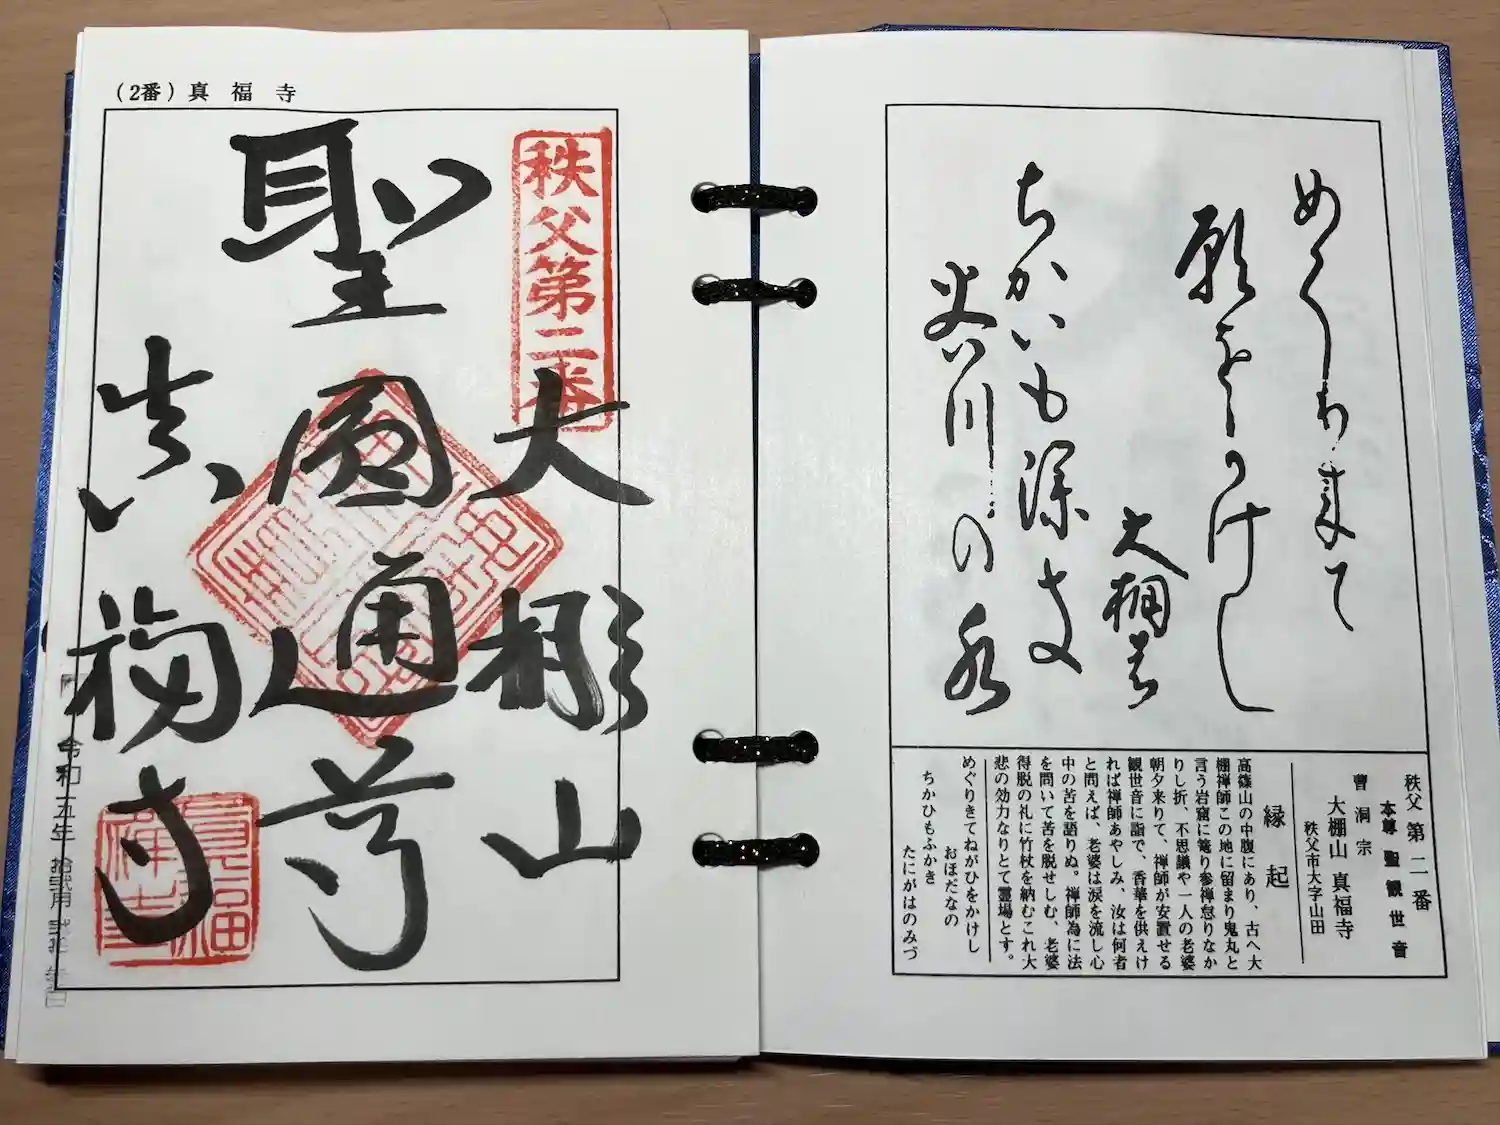 めくり来て
願をかけし
大棚
ちかいも深き
谷川の水
秩父第二番
本尊 聖観世音
曹洞宗
大棚山 真福寺
秩父市大字山田
縁起
高篠山の中腹にあり、古へ大
棚禅師この地に留まり鬼丸と
言う岩窟に篭り参禅怠りなか
りし折、不思議や一人の老婆
朝夕来りて、禅師が安置せる
観世音に詣で、香華を供えけ
れば禅師あやしみ、汝は何者
と問えば、老婆は涙を流し心
中の苦を語りぬ。禅師為に法
を問いて苦を脱せしむ、老婆
得脱の礼に竹杖を納むこれ大
悲の効力なりとて霊場とす。
めぐりきてねがひをかけし
おほだなの
ちかひもふかき
たにがはのみづ
(2番)真福寺
秩父第二番
大棚山
聖圓通尊
真福寺
令和五年 拾弐月